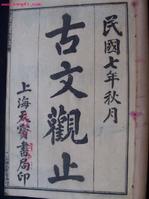 民國七年秋月
古文觀止
上海天寶書局印